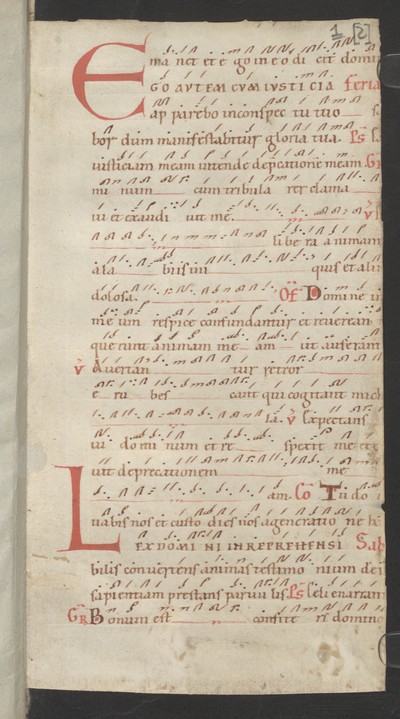 1 [2]
E ma net et e go in e o di cit domi
EGO AVTEM CVM IVSTICIA feria
ap parebo in conspec tu tuo
bor dum manifestabitur gloria tua. Ps
iusticiam meam intende deprecatione meam GR
mi num cum tribula rer clama
ui et exaudi uit me. V
libe ra animam
a la biis ini quis et a li
dolosa. Of Domine in
me um respice confundantur et reverean
que runt animam me am ut auferant
V Avertan tur retror
e ru bes cant qui cogitant mich
la. V Expectans
ui dominum et re spexit me et e
uit deprecationem me
am. Co Tu do
uabis nos et custo dies nos a generatio ne h
LEX DOMINI INREPREHENSI Sab
bilis convertens animas testimo nium dei
sapientiam prestans parvu lis. Ps Celi enarrant
GR Bonum est confite ri domino